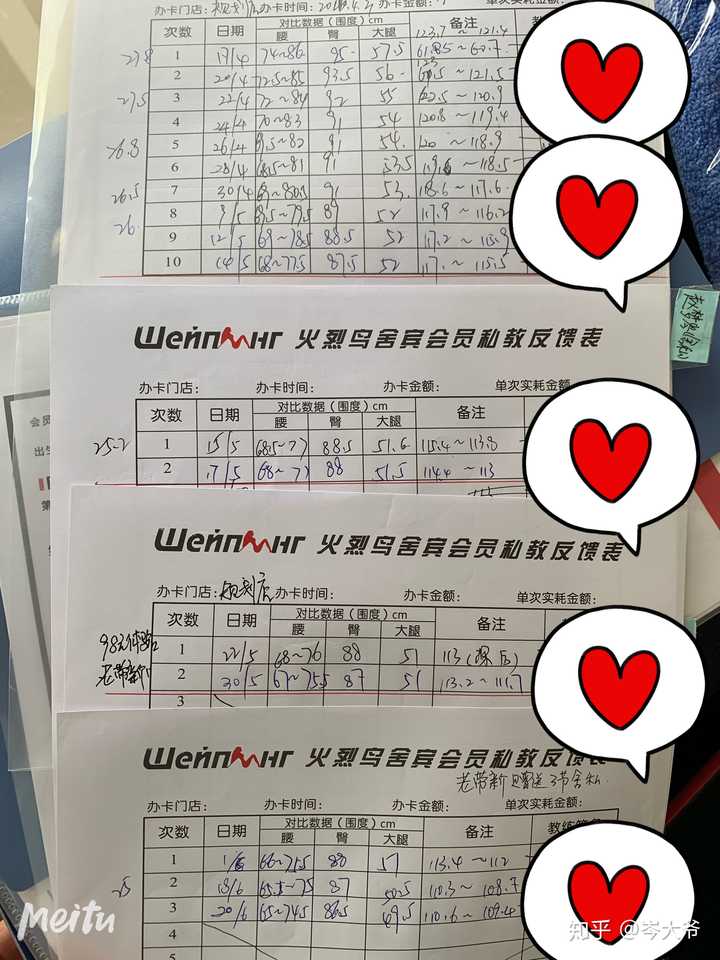 办卡门店： 办卡时间： 办卡金额： 单次实耗金额：
次数 日期 对比数据（围度）cm 备注
腰 臀 大腿 123.7～121.4
27.8 1 17/4 74～86 95 57.5
2 20/4 72.5～85 93.5 56 ～121.5
27.5 3 22/4 72～84 92 55 122.5～120.9
4 24/4 70～83 91 54 120.8～119.4
26.8 5 26/4 69.5～82 91 54 120～118.9
6 28/4 68.5～81 91 53.5 119.6～118.5
26.5 7 30/4 ～80.5 91 53 118.6～117.6
26 8 9/5 68.5～79.5 89 52 117.9～116.2
9 12/5 69～78.5 88.5 52 117.2～115.9
10 14/5 68～77.5 87.5 52 117.～115.5
Шейпинг 火烈鸟舍宾会员私教反馈表
办卡门店： 办卡时间： 办卡金额： 单次实耗金额
次数 日期 对比数据（围度）cm 备注
腰 臀 大腿
25.2 1 15/5 68.5～77 88.5 51.6 115.4～113.8
2 17/5 68～77 88 51.5 114.4～113
Шейпинг 火烈鸟舍宾会员私教反馈表
办卡门店： 办卡时间： 办卡金额： 单次实耗金额：
次数 日期 对比数据（围度）cm 备注
腰 臀 大腿
1 22/5 68～76 88 51 113（课后）
老带新 2 30/5 67～75.5 87 51 113.2～111.7
3
Шейпинг 火烈鸟舍宾会员私教反馈表
老带新赠送3节舍私
办卡门店： 办卡时间： 办卡金额： 单次实耗金额：
次数 日期 对比数据（围度）cm 备注
腰 臀 大腿
1 1/6 66～75.5 88 51 113.4～112
25 2 18/6 65.5～75 87 50.5 110.3～108.7
3 20/6 65～74.5 86.5 49.5 110.6～109.4
4
5
Meitu
知乎 @岑大爷